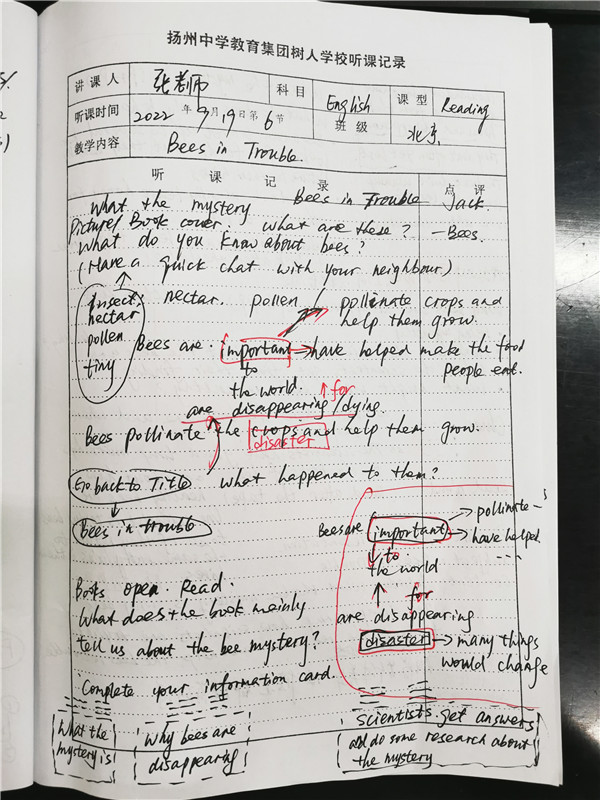 扬州中学教育集团树人学校听课记录
讲课人 张老师 科目 English 课型 Reading
听课时间 2022年9月19日第6节 班级
教学内容 Bees in Trouble.
听课记录 点评
What the mystery Bees in Trouble Jack
Picture! Book cover. what are these? -Bees.
What do you know about bees?
(Have a quick chat with your neighbour)
Insects nectar. pollen pollinate crops and
nectar help them grow.
pollen Bees are important → have helped make the food
tiny to people eat.
the world. ↑ for
are disappearing/dying.
Bees pollinate the crops and help them grow.
disaster
Go back to Title what happened to them?
↓
Bees in trouble
Bees are important → pollinate -s
→ have helped
to ...
the world
↑ for
are disappearing
disaster → many things
would change
Books open. Read.
What does the book mainly
tell us about the bee mystery?
Complete your information card.
What the
mystery is
Why bees are
disappearing
Scientists get answers
and do some research about
the mystery